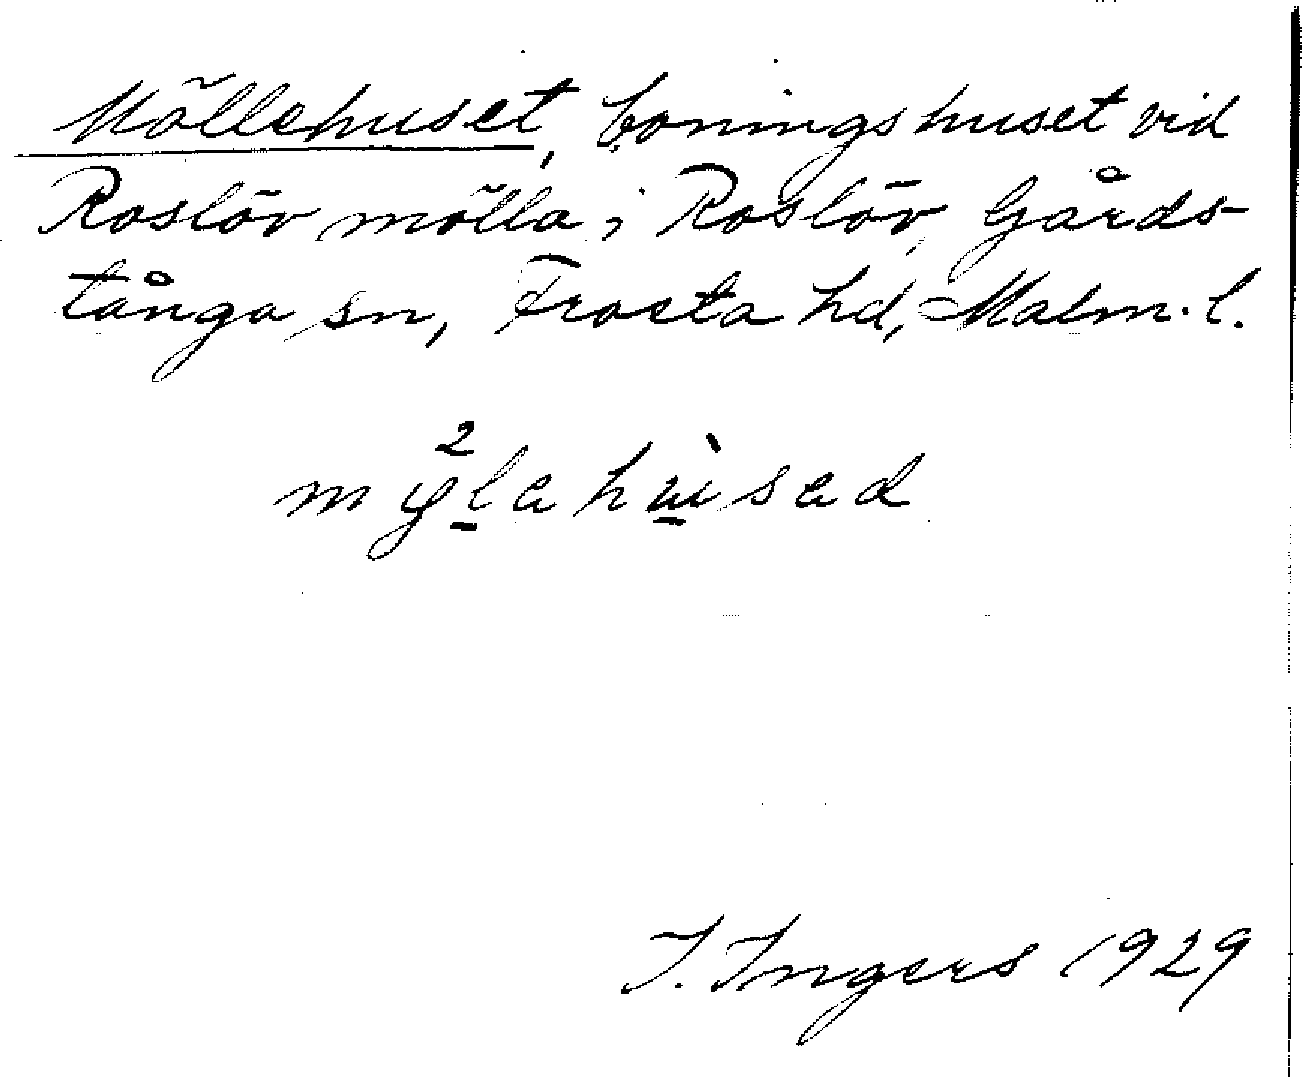 Möllehuset, boningshuset vid
Roslöv mölla i Roslöv, Gårds-
tånga sn, Frosta hd, Malm. l.
mỳ²lahùsad
I. Ingers 1929